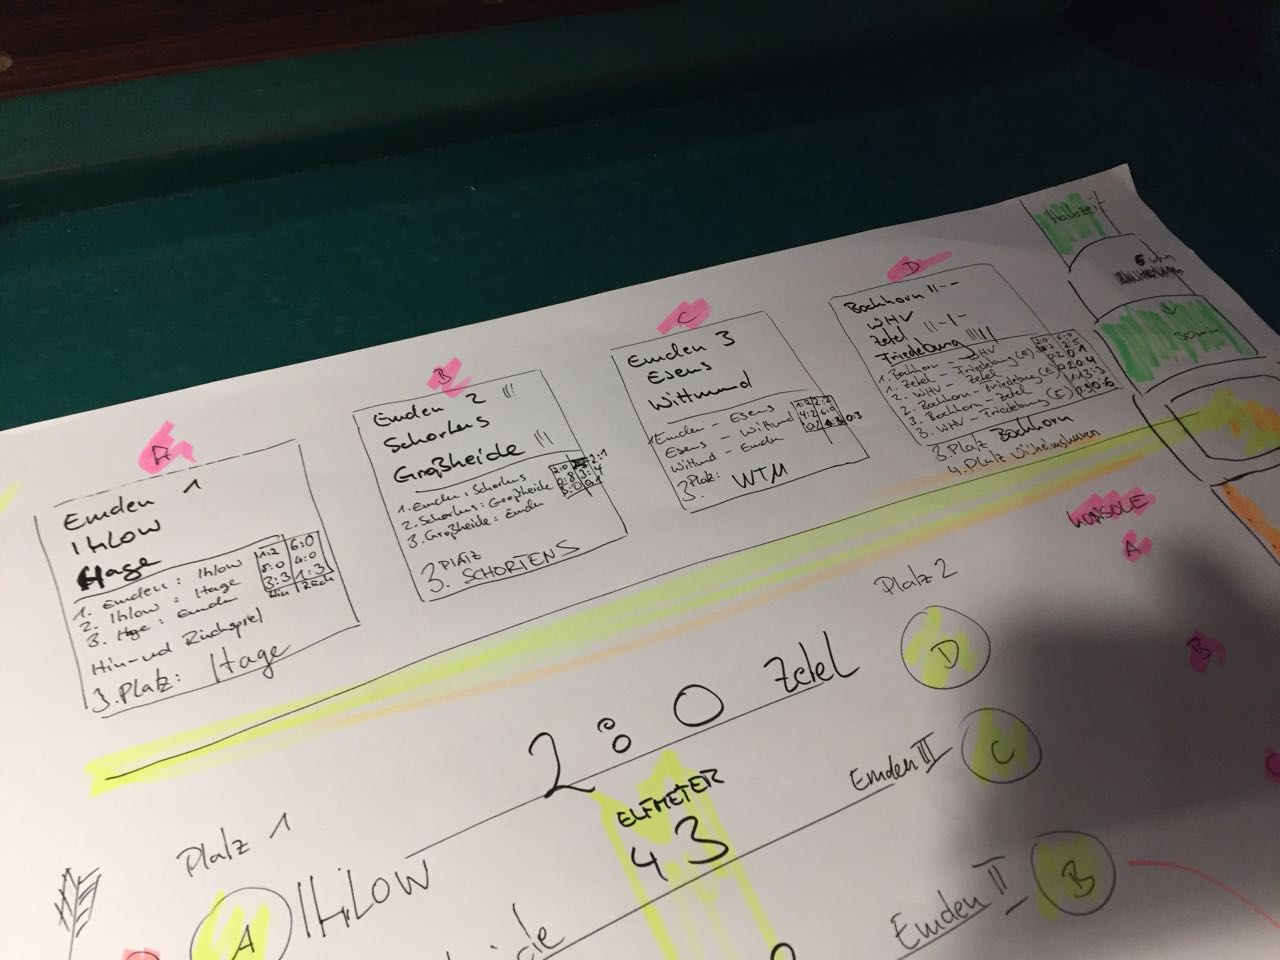 A
Emden 1
Ihlow
Hage
1. Emden : Ihlow 1:2 6:0
2. Ihlow : Hage 5:0 4:0
3. Hage : Emden 3:3 1:3
Hin Rück
Hin- und Rückspiel
3. Platz: Hage
B
Emden 2 |||
Schortens
Großheide |||
1. Emden : Schortens 2:0 2:1
2. Schortens : Großheide 0:8 3:4
3. Großheide : Emden 5:0
3. PLATZ
SCHORTENS
C
Emden 3
Esens
Wittmund
1 Emden - Esens 1:2 2:2
Esens - Wittmund 4:2 6:0
Wittmund - Emden 0:3
3. Platz: WTM
D
Bockhorn || - -
WHV
Zetel || - | -
Friedeburg |||||
1. Bockhorn - WHV
1. Zetel - Friedeburg (E)
2. WHV - Zetel
2. Bockhorn - Friedeburg (E)
3. Bockhorn - Zetel
3. WHV - Friedeburg (E)
3. Platz Bockhorn
4. Platz Wilhelmshaven
Halbzeit
6 min
30 min
KONSOLE
A
B
C
Platz 2
D
Zetel
2 : 0
Emden III
C
ELFMETER
4 3
Platz 1
A
IHLOW
Emden II
B